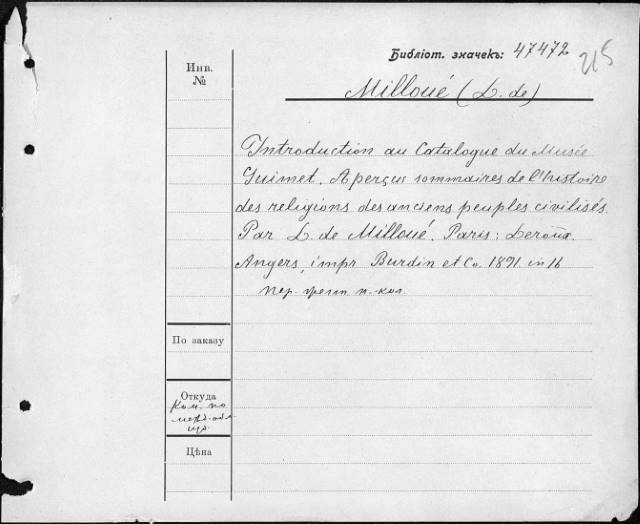 Библіот. значекъ: 47472 215
Инв.
№
Milloué (L. de)
Introduction au Catalogue du Musée
Guimet. Aperçus sommaires de l'histoire
des religions des anciens peuples civilisés.
Par L. de Milloué. Paris: Leroux.
Angers, impr. Burdin et Co. 1891. in 16
пер.
По заказу
Откуда
Ком. по
Цѣна